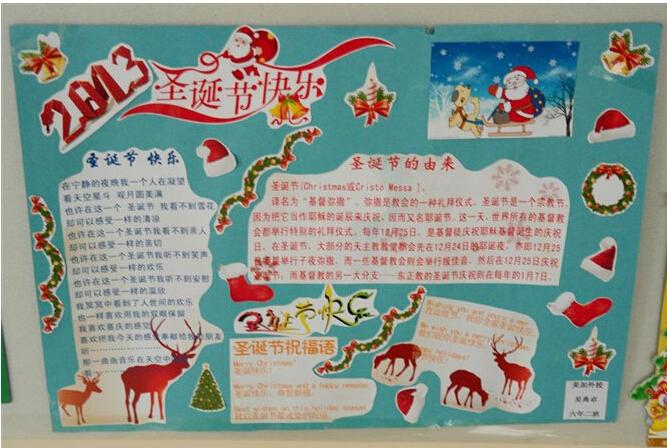 2013
圣诞节快乐
圣诞节 快乐
在宁静的夜晚我一个人在凝望
看天空星斗 观月圆美满
也许在这一个 圣诞节 我看不到雪花
却可以感受一样的清凉
也许在这一个圣诞节我看不到亲人
却可以感受一样的亲切
也许在这一个圣诞节我听不到笑声
却可以感受一样的欢乐
也许在这一个圣诞节我听不到安慰
却可以感受一样的温欣
我冥冥中看到了人世间的欢乐
也一样可以用我的双眼保留
我喜欢喜庆的感觉
喜欢把我今天的感觉奉献给我的朋友
听
那一曲曲音乐在天空中
看
圣诞节的由来
圣诞节(Christmas或Cristo Messa ),
译名为“基督弥撒”。弥撒是教会的一种礼拜仪式。圣诞节是一个宗教节,
因为把它当作耶稣的诞辰来庆祝,因而又名耶诞节。这一天,世界所有的基督教
会都举行特别的礼拜仪式。每年12月25日,是基督徒庆祝耶稣基督诞生的庆祝
日,在圣诞节,大部分的天主教教堂都会先在12月24日的耶诞夜,亦即12月25
凌晨举行子夜弥撒,而一些基督教会则会举行报佳音,然后在12月25日庆祝
节;而基督教的另一大分支——东正教的圣诞节庆祝则在每年的1月7日。
圣诞节快乐
圣诞节祝福语
Merry Christmas!
圣诞快乐!
Merry Christmas and a happy
圣诞快乐,恭贺新禧。
Best wishes on this holiday season
美加外校
吴典卓
六年二班